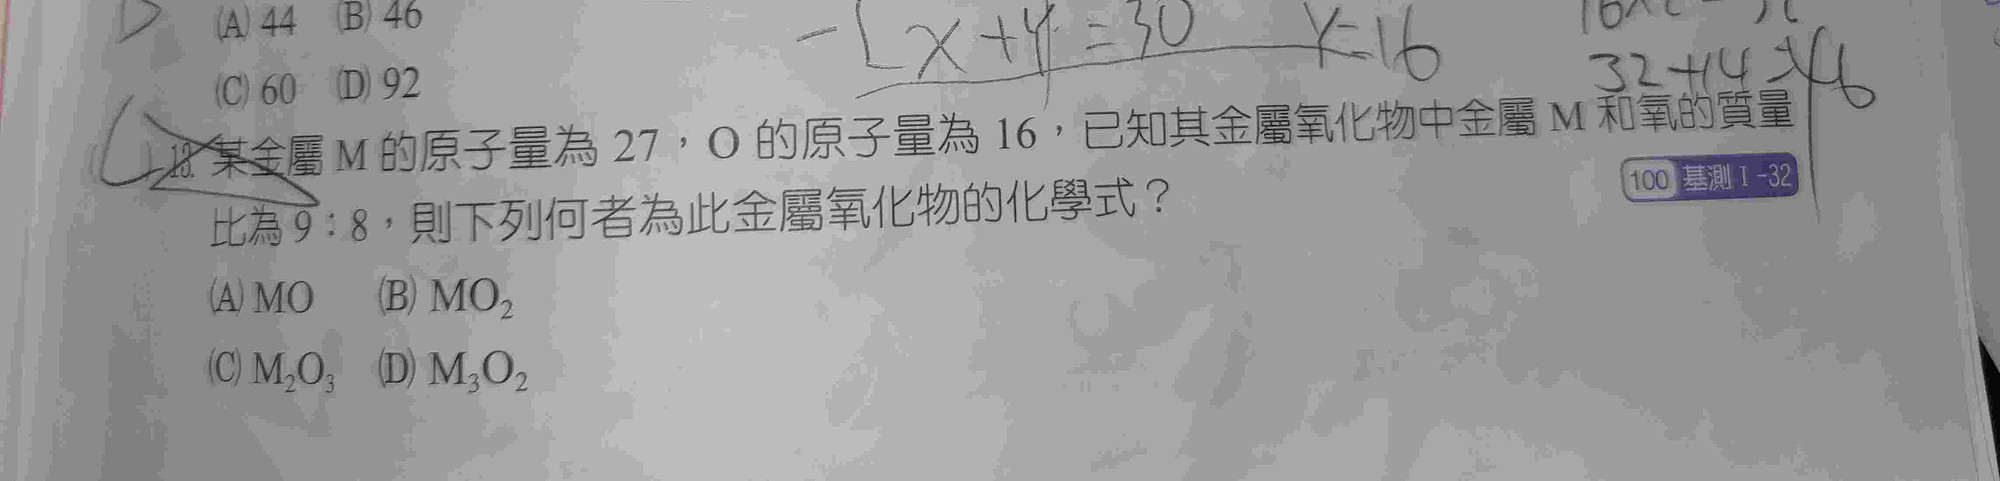 (A) 44 (B) 46
(C) 60 (D) 92
x+y=30 y=16
32+14
13. 某金屬 M 的原子量為 27，O 的原子量為 16，已知其金屬氧化物中金屬 M 和氧的質量
比為 9：8，則下列何者為此金屬氧化物的化學式？
100 基測 I -32
(A) MO (B) MO₂
(C) M₂O₃ (D) M₃O₂